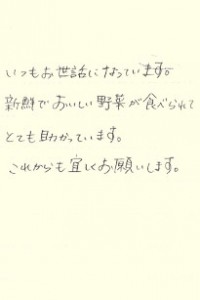 いつもお世話になっています。
新鮮でおいしい野菜が食べられて
とても助かっています。
これからも宜しくお願いします。